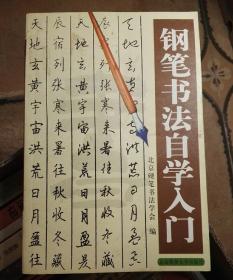 钢笔书法自学入门
北京硬笔书法学会 编
天地玄黄洪荒日月盈昃
辰宿列张寒来暑往秋收冬藏
天地玄黄宇宙洪荒日月盈昃
辰宿列张寒来暑往秋收冬藏
天地玄黄宇宙洪荒日月盈